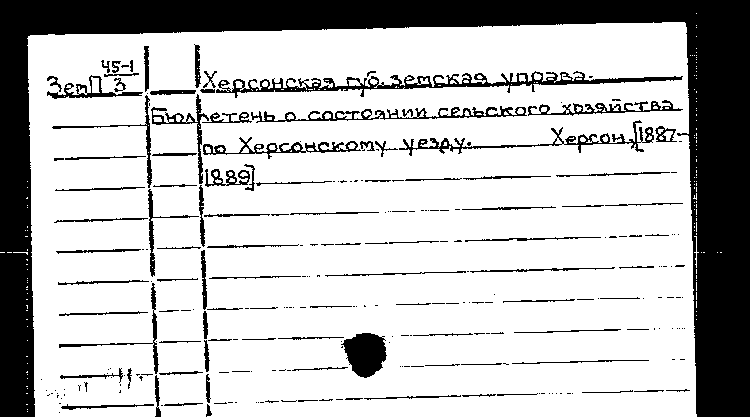 ЗемП 45-1/3 Херсонская губ. земская управа.
Бюллетень о состоянии сельского хозяйства
по Херсонскому уезду. Херсон, [1887-
1889].